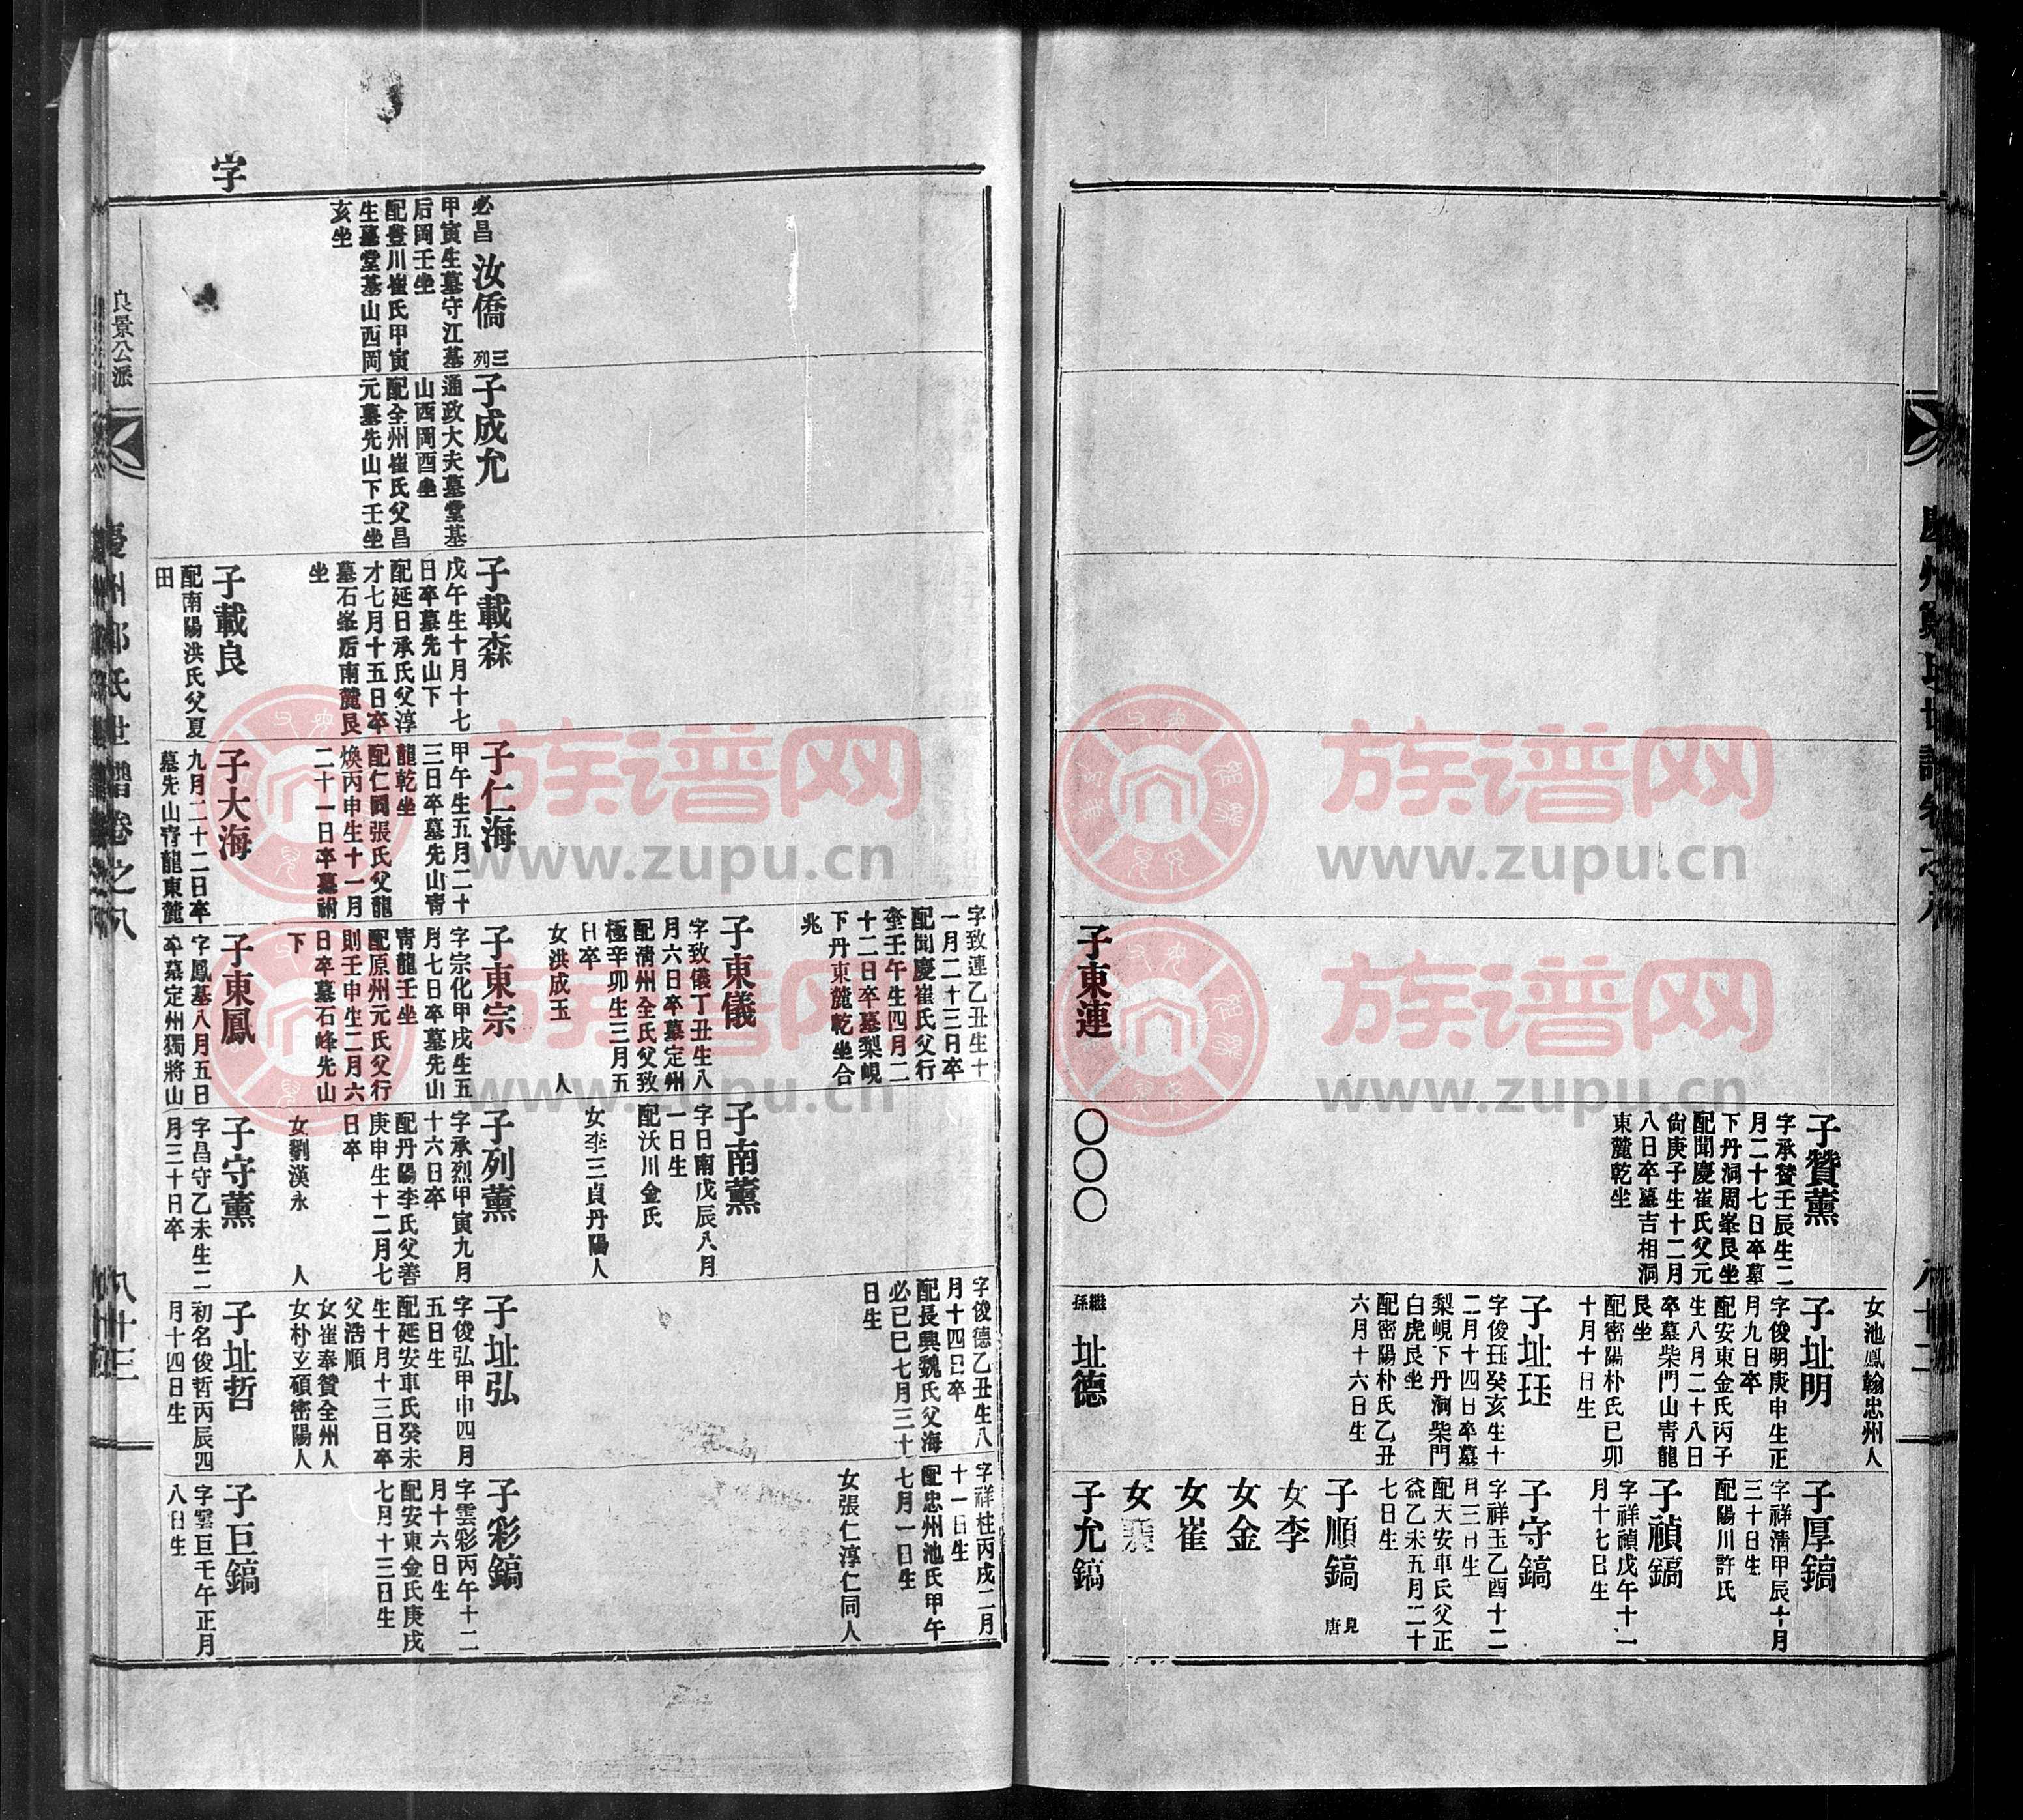 慶州鄭氏世譜卷之八
八十二
子東連
〇〇〇
子贊薰
字承贊壬辰生二
月二十七日卒墓
下丹洞周峯艮坐
配聞慶崔氏父元
尙庚子生十二月
八日卒墓吉相洞
東麓乾坐
女池鳳翰忠州人
子址明
字俊明庚申生正
月九日卒
配安東金氏丙子
生八月二十八日
卒墓柴門山靑龍
艮坐
配密陽朴氏己卯
十月十日生
子址珏
字俊珏癸亥生十
二月十四日卒墓
梨峴下丹洞柴門
白虎艮坐
配密陽朴氏乙丑
六月十六日生
繼孫
址德
子厚鎬
字祥濟甲辰十月
三十日生
配陽川許氏
子禎鎬
字祥禎戊午十一
月十七日生
子守鎬
字祥玉乙酉十二
月三日生
配天安車氏父正
益乙未五月二十
七日生
子順鎬 見唐
女李
女金
女崔
女裵
子允鎬
字
必昌 汝僑 三列
甲寅生墓守江墓
后岡壬坐
配豊川崔氏甲寅
生墓堂基山西岡
亥坐
子成允
通政大夫墓堂基
山西岡酉坐
配全州崔氏父昌
元墓先山下壬坐
子載森
戊午生十月十七
日卒墓先山下
配延日承氏父淳
才七月十五日卒
墓石峯后南麓艮
坐
子載良
配南陽洪氏父夏
田
子仁海
甲午生五月二十
三日卒墓先山靑
龍乾坐
配仁同張氏父龍
煥丙申生十一月
二十一日卒墓祔
子大海
九月二十二日卒
墓先山靑龍東麓
字致連乙丑生十
一月二十三日卒
配聞慶崔氏父行
奎壬午生四月二
十二日卒墓梨峴
下丹東麓乾坐合
兆
子東儀
字致儀丁丑生八
月六日卒墓定州
配淸州全氏父致
極辛卯生三月五
日卒
女洪成玉 人
子東宗
字宗化甲戌生五
月七日卒墓先山
靑龍壬坐
配原州元氏父行
則壬申生二月六
日卒墓石峰先山
下
子東鳳
字鳳基八月五日
卒墓定州獨將山
子南薰
字日南戊辰八月
一日生
配沃川金氏
女李三貞丹陽人
子列薰
字承烈甲寅九月
十六日卒
配丹陽李氏父善
庚申生十二月七
日卒
女劉漢永 人
子守薰
字昌守乙未生二
月三十日卒
字俊德乙丑生八
月十四日卒
配長興魏氏父海
必己巳七月三十
日生
子址弘
字俊弘甲申四月
五日生
配延安車氏癸未
生十月十三日卒
父浩順
女崔奉贊全州人
女朴玄碩密陽人
子址哲
初名俊哲丙辰四
月十四日生
字祥柱丙戌二月
十一日生
配忠州池氏甲午
七月一日生
女張仁淳仁同人
子彩鎬
字雲彩丙午十二
月十六日生
配安東金氏庚戌
七月十三日生
子巨鎬
字雲巨壬午正月
八日生
良景公派
慶州鄭氏世譜卷之八
八十三
族谱网
www.zupu.cn
族谱网
www.zupu.cn
族谱网
www.zupu.cn
族谱网
www.zupu.cn